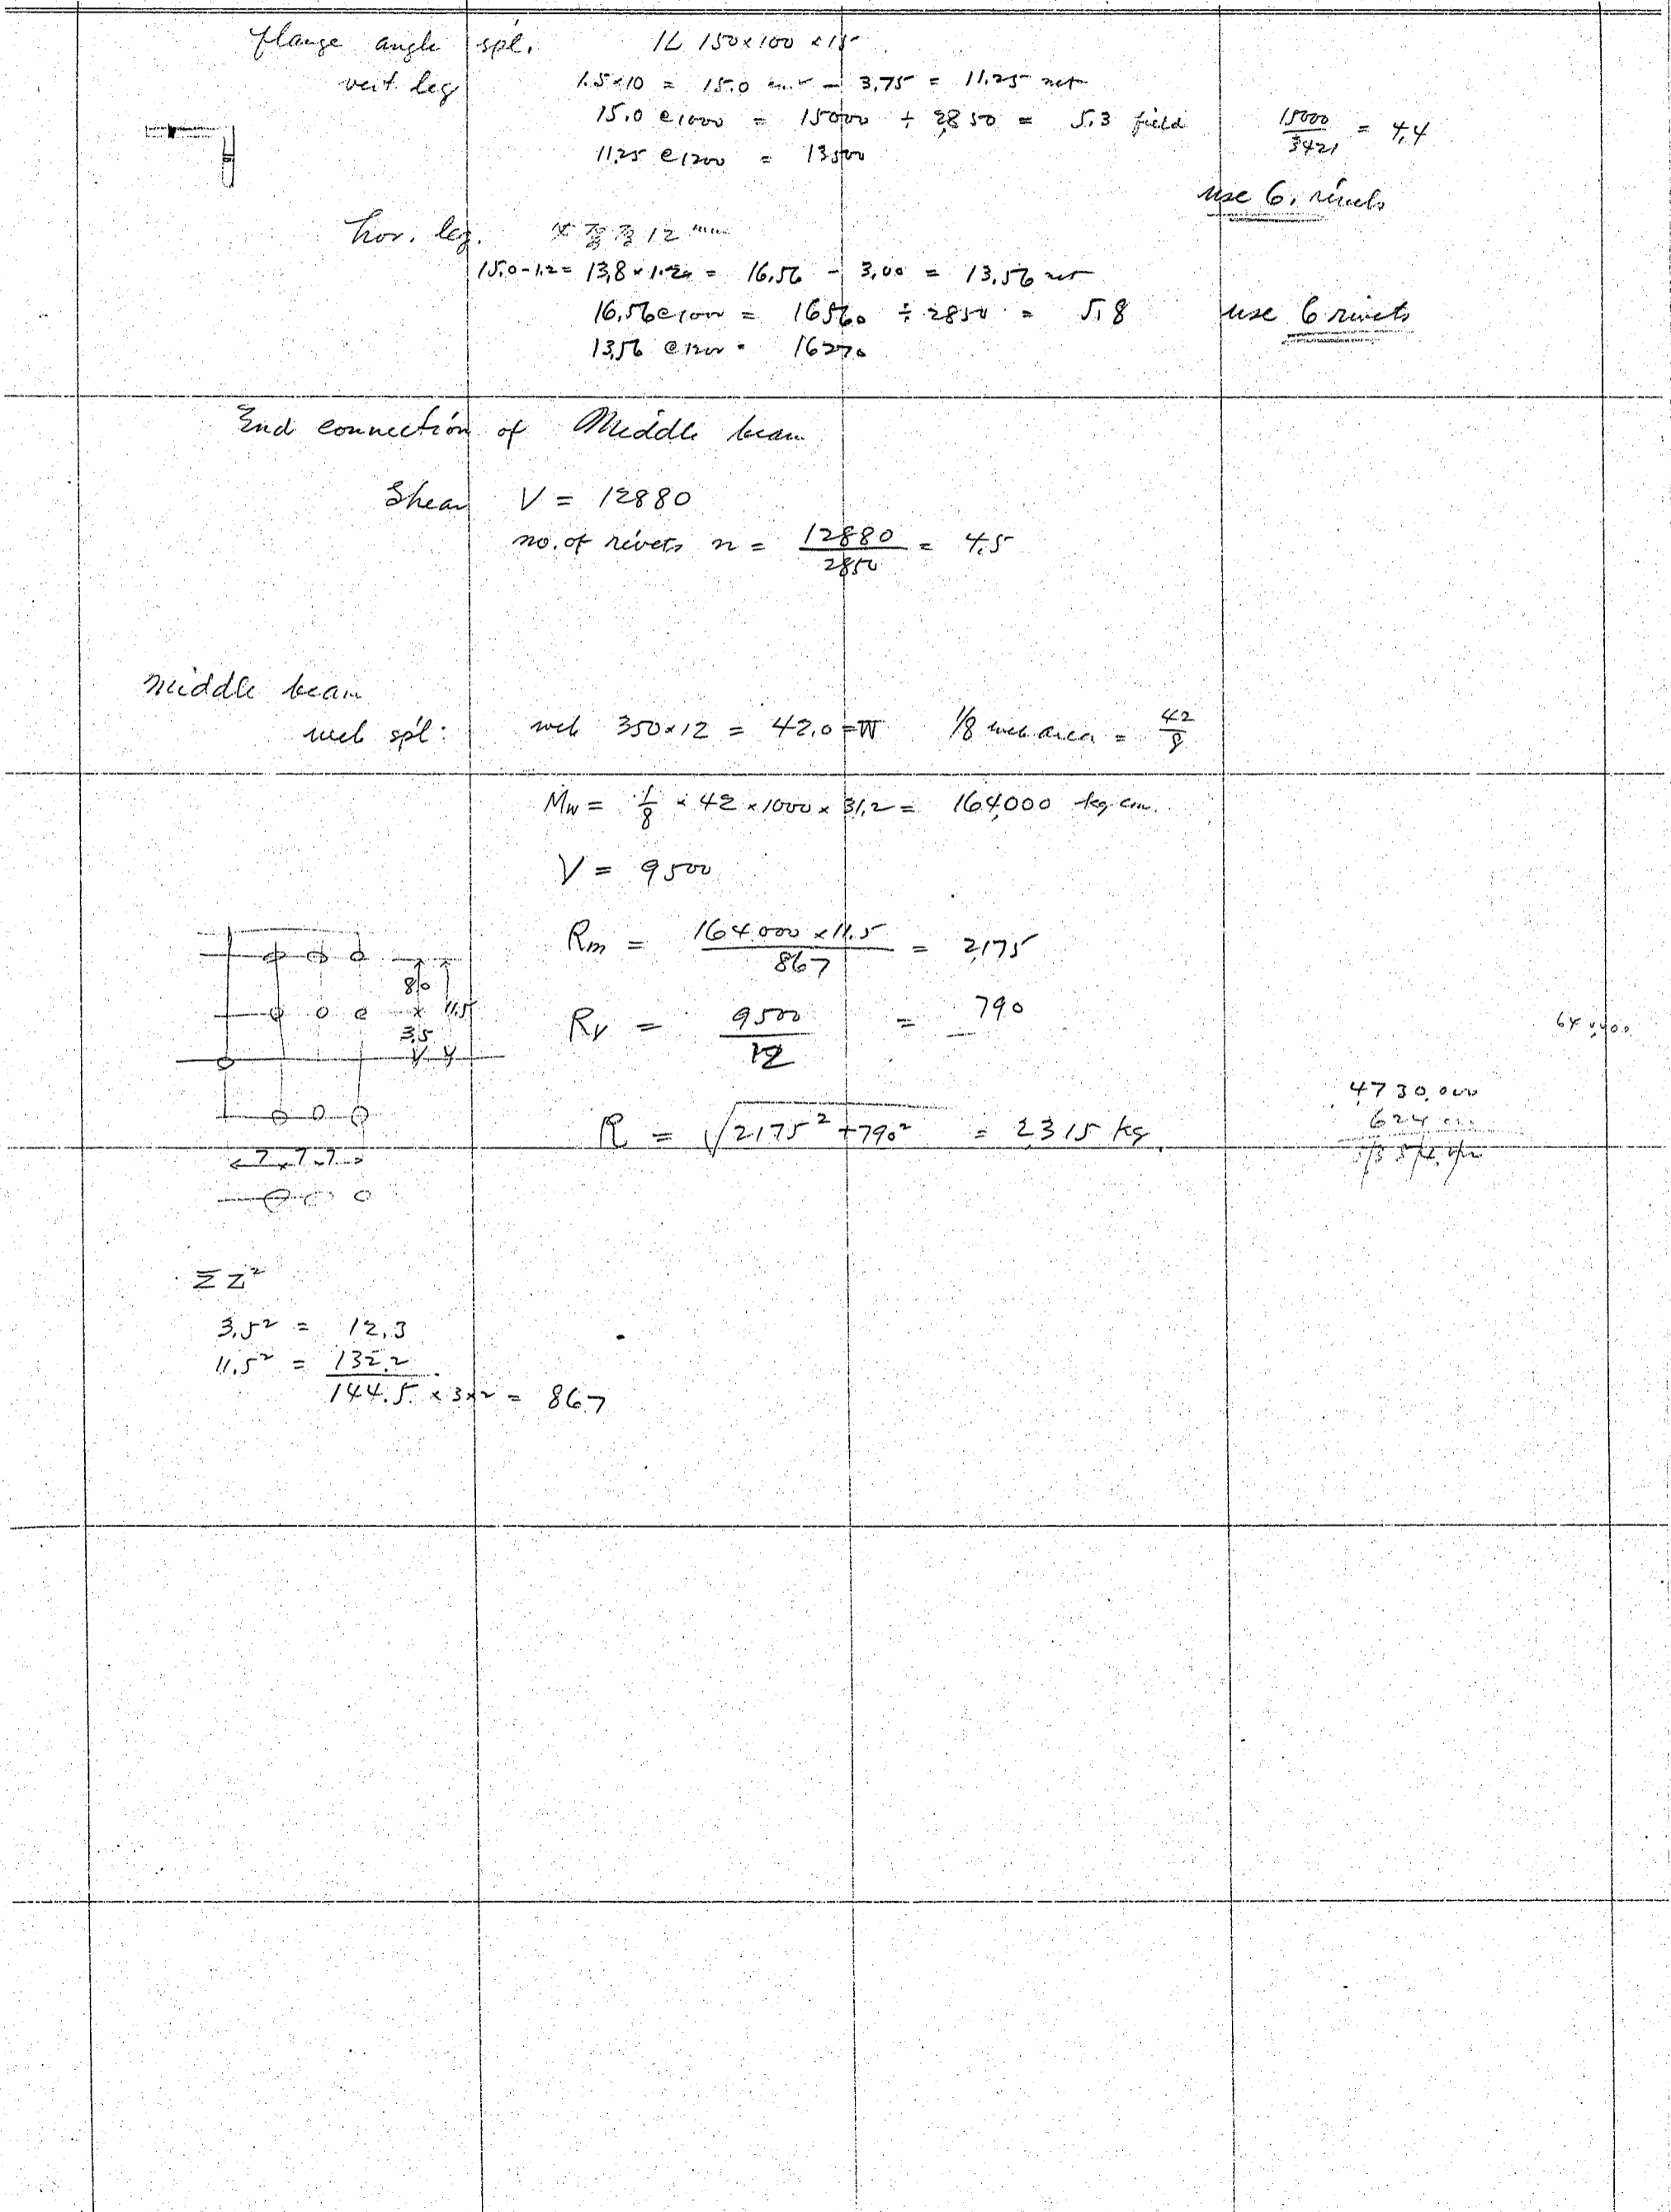 flange angle spl. 1L 150×100×15
vert. leg 1.5×10 = 15.0 - 3.75 = 11.25 net
15.0 @1000 = 15000 ÷ 2850 = 5.3 field 15000/3421 = 4.4
11.25 @1200 = 13500
use 6. rivets
hor. leg. 12 mm
15.0-1.2 = 13.8 × 1.20 = 16.56 - 3.00 = 13.56 net
16.56 @1000 = 16560 ÷ 2850 = 5.8 use 6 rivets
13.56 @1200 = 16270
End connection of Middle beam
Shear V = 12880
no. of rivets n = 12880/2850 = 4.5
Middle beam
web spl: web 350×12 = 42.0 1/8 web area = 42/8
Mw = 1/8 × 42 × 1000 × 31.2 = 164,000 kg cm.
V = 9500
Rm = 164.000 × 11.5 / 867 = 2,175
8.0
11.5
3.5
Rv = 9500/12 = 790
4730,000
R = √2175² + 790² = 2315 kg.
7 7 7
Σz²
3.5² = 12.3
11.5² = 132.2
144.5 × 3×2 = 867